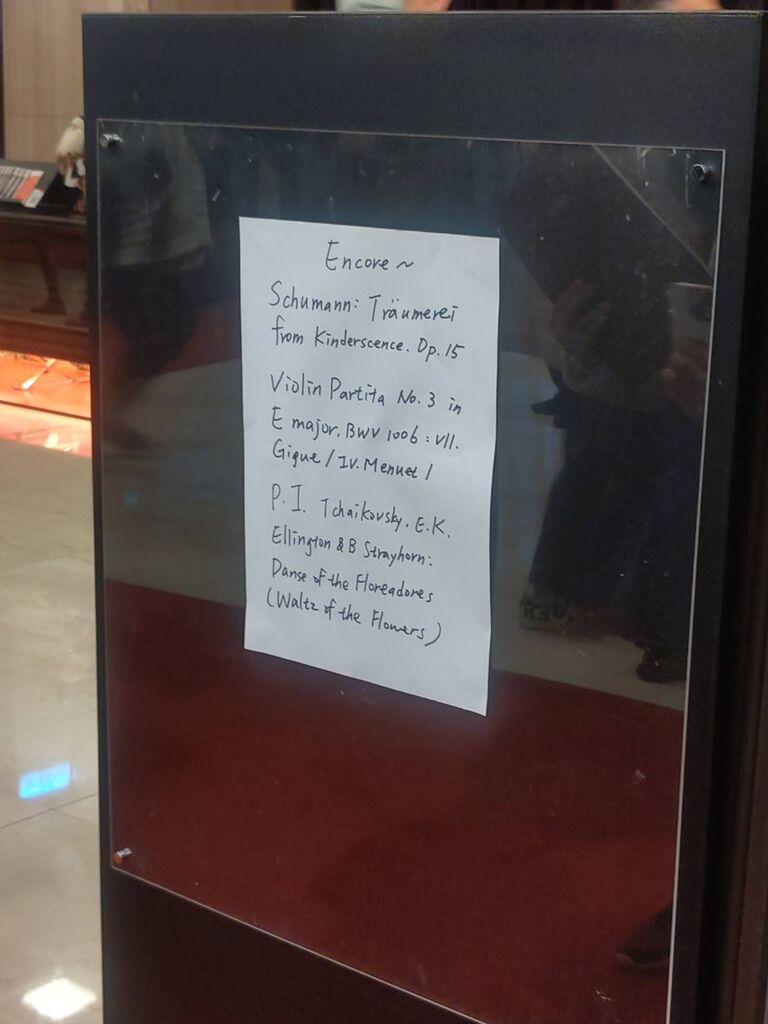 Encore ~
Schumann: Träumerei
from Kinderscence. Op. 15
Violin Partita No. 3 in
E major. BWV 1006 : VII.
Gigue / IV. Menuet /
P. I. Tchaikovsky, E.K.
Ellington & B Strayhorn:
Danse of the Floreadores
(Waltz of the Flowers)